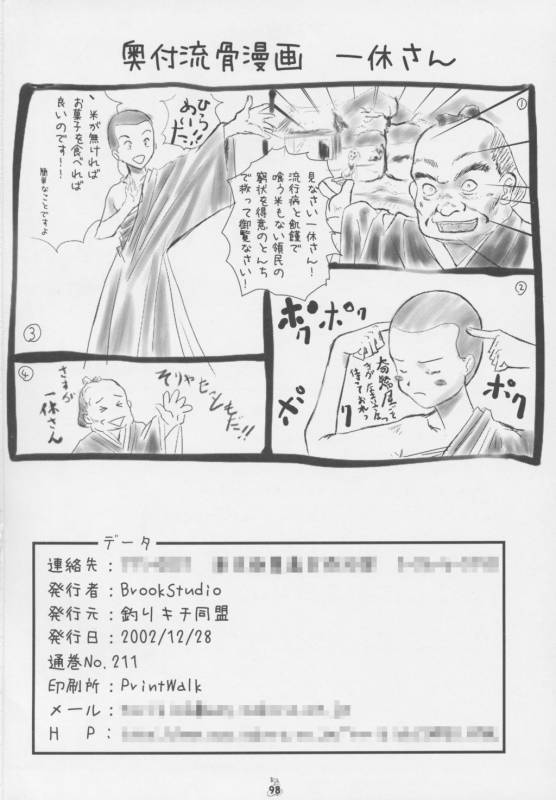 奥付流骨漫画　一休さん
①
見なさい一休さん！
流行病と飢饉で
喰う米もない領民の
窮状を得意のとんち
で救って御覧なさい！
②
ポクポク
ポク
ポク
ポク
③
ひらめいた!!
、米が無ければ
お菓子を食べれば
良いのです！！
簡単なことですよ
④
そりゃたいしたもんだ!!
さすが
一休さん
データ
連絡先：
発行者：BrookStudio
発行元：釣りキチ同盟
発行日：2002/12/28
通巻No.211
印刷所：PrintWalk
メール：
Ｈ　Ｐ：
98